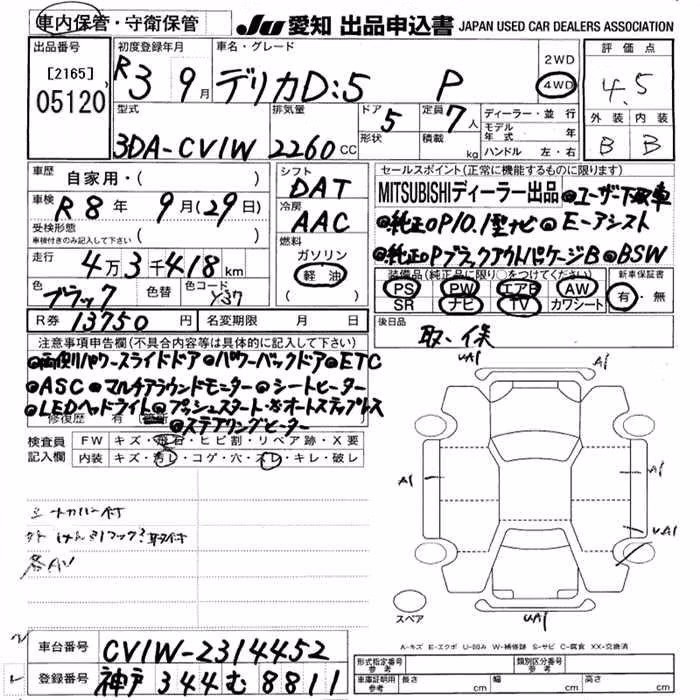 車内保管・守衛保管
JU 愛知 出品申込書 JAPAN USED CAR DEALERS ASSOCIATION
出品番号
[2165]
05120
初度登録年月
R3 9月
車名・グレード
デリカD:5 P
2WD
4WD
評価点
4.5
外装 内装
B B
型式
3DA-CV1W
排気量
2260 CC
ドア
5
形状
定員
7人
積載
kg
ディーラー・並行
モデル年式 年
ハンドル 左・右
車歴
自家用・( )
車検
R8年 9月(29日)
受検形態
車検付きのみ記入して下さい ( )
走行
4万3千418km
色
ブラック
色替
色コード
X37
R券 13750円
名変期限 月 日
シフト
DAT
冷房
AAC
燃料
ガソリン
軽油
( )
セールスポイント(正常に機能するものに限ります)
MITSUBISHIディーラー出品 ●ユーザー下取車
●純正OP10.1型ナビ ●E-アシスト
●純正OPブラックアウトパッケージB ●BSW
装備品(純正品に限り○をつけてください)
PS PW エアB AW
SR ナビ TV カワシート
新車保証書
有・無
後日品
取、保
注意事項申告欄(不具合内容等は具体的に記入して下さい)
●両側パワースライドドア ●パワーバックドア ●ETC
●ASC ●マルチアラウンドモニター ●シートヒーター
●LEDヘッドライト ●プッシュスタート ※オートステップレス
修復歴 有
●ステアリングヒーター
検査員記入欄
FW キズ・飛石・ヒビ割・リペア跡・X要
内装 キズ・汚レ・コゲ・穴・スレ・キレ・破レ
シートカバー付
UA1
A1
A1
A1
UA1
UA1
スペア
A-キズ E-エクボ U-凹み W-補修跡 S-サビ C-腐食 XX-交換済
車台番号 CV1W-2314452
登録番号 神戸 344 む 8811
形式指定番号 参考
類別区分番号 参考
車庫証明用 参考
長さ cm 幅 cm 高さ cm